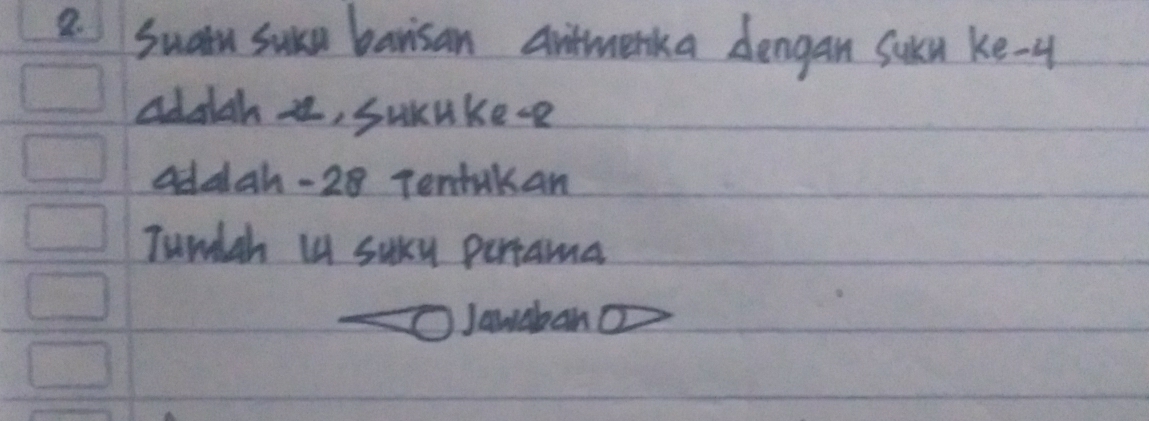 2. Suatu suku barisan aritmetika dengan suku ke-4
adalah -12, suku ke-
adalah -28 Tentukan
Jumlah 14 suku pertama
Jawaban